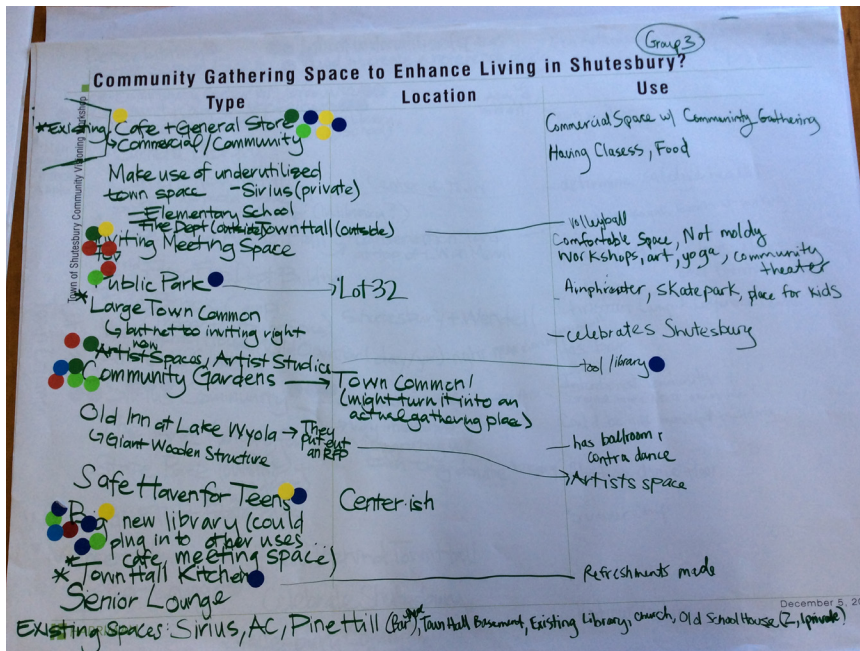 Group 3
Community Gathering Space to Enhance Living in Shutesbury?
Type Location Use
Town of Shutesbury Community Visioning Workshop
*Existing Cafe + General Store
Commercial/Community
Commercial Space w/ Community Gathering
Having Clasess, Food
Make use of underutilized
town space - Sirius (private)
- Elementary School
Fire Dept (outside) Town Hall (outside)
volleyball
Inviting Meeting Space
Comfortable Space, Not moldy
Workshops, art, yoga, community
theater
Public Park → Lot 32
Amphitheater, skatepark, place for kids
* Large Town Common
but not too inviting right
now
- celebrates Shutesbury
Artist Spaces, Artist Studios
- tool library
Community Gardens → Town Common!
(might turn it into an
actual gathering place)
Old Inn at Lake Wyola → They
put out
an RFP
Giant Wooden Structure
- has ballroom
contra dance
→ Artists space
Safe Haven for Teens
Center-ish
Big new library (could
plug in to other uses...
* cafe, meeting space...)
* Town Hall Kitchen
Refreshments made
Senior Lounge
December 5, 20
Existing Spaces: Sirius, AC, Pine Hill, Town Hall Basement, Existing Library, church, Old School House (2, 1 private)